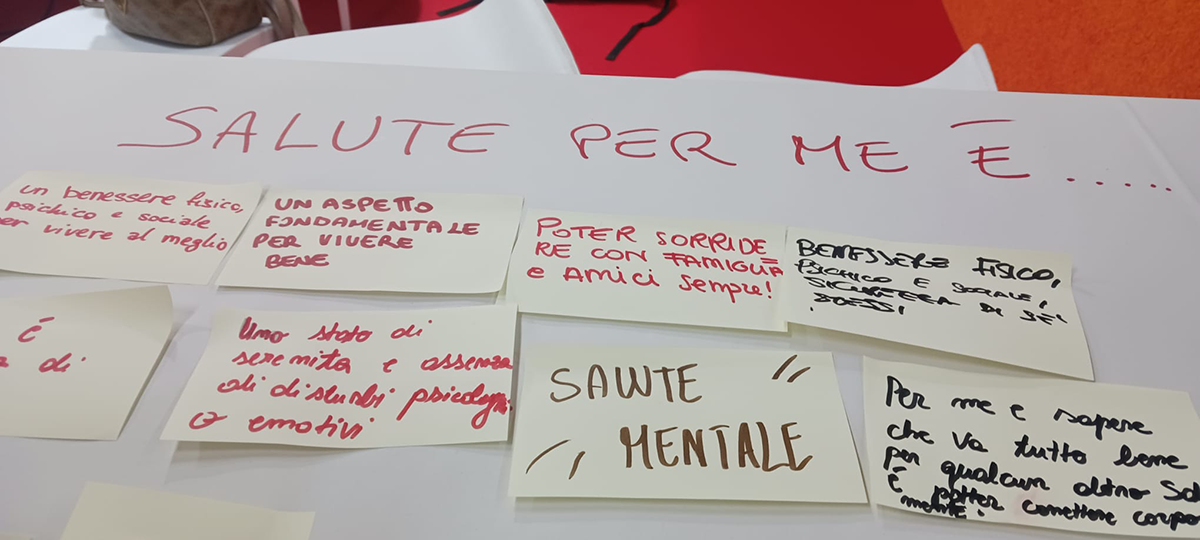 SALUTE PER ME È......
un benessere fisico,
psichico e sociale
per vivere al meglio
UN ASPETTO
FONDAMENTALE
PER VIVERE
BENE
POTER SORRIDE=
RE CON FAMIGLIA
e AMICI sempre!
BENESSERE FISICO,
PSICHICO E SOCIALE,
SICUREZZA DI SE'
STESSI
é
di
Uno stato di
serenità e assenza
di disturbi psicologici
o emotivi
SALUTE
MENTALE
Per me e sapere
che va tutto bene
per qualcun altro
È potter connettere corpo
mente.